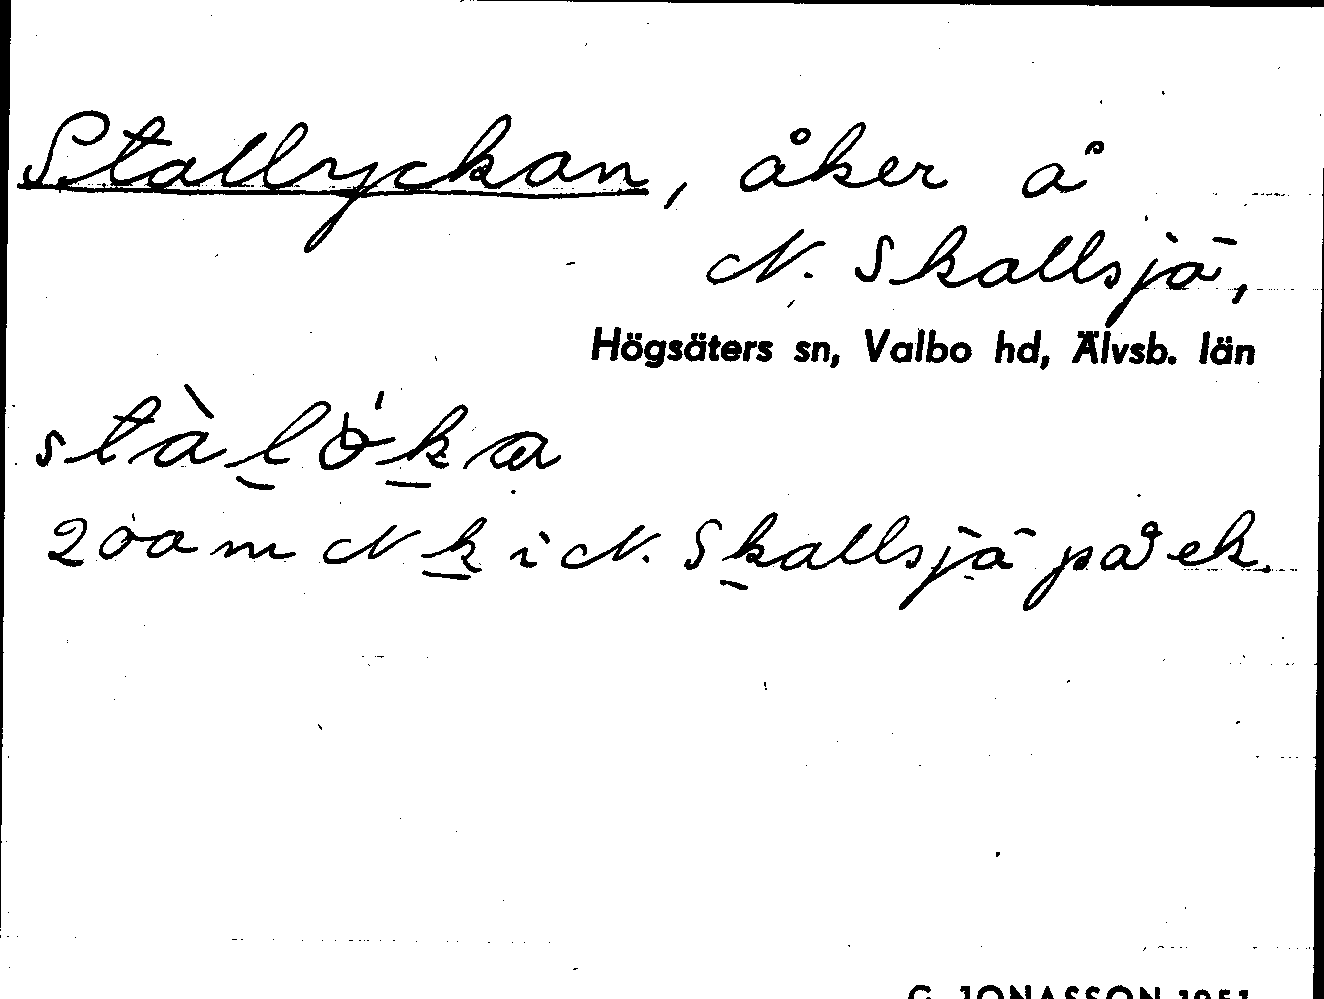 Stallyckan, åker å
N. Skallsjö,
Högsäters sn, Valbo hd, Älvsb. län
stàlǿka
200 m N k i N. Skallsjö på ek.
G. JONASSON 1951